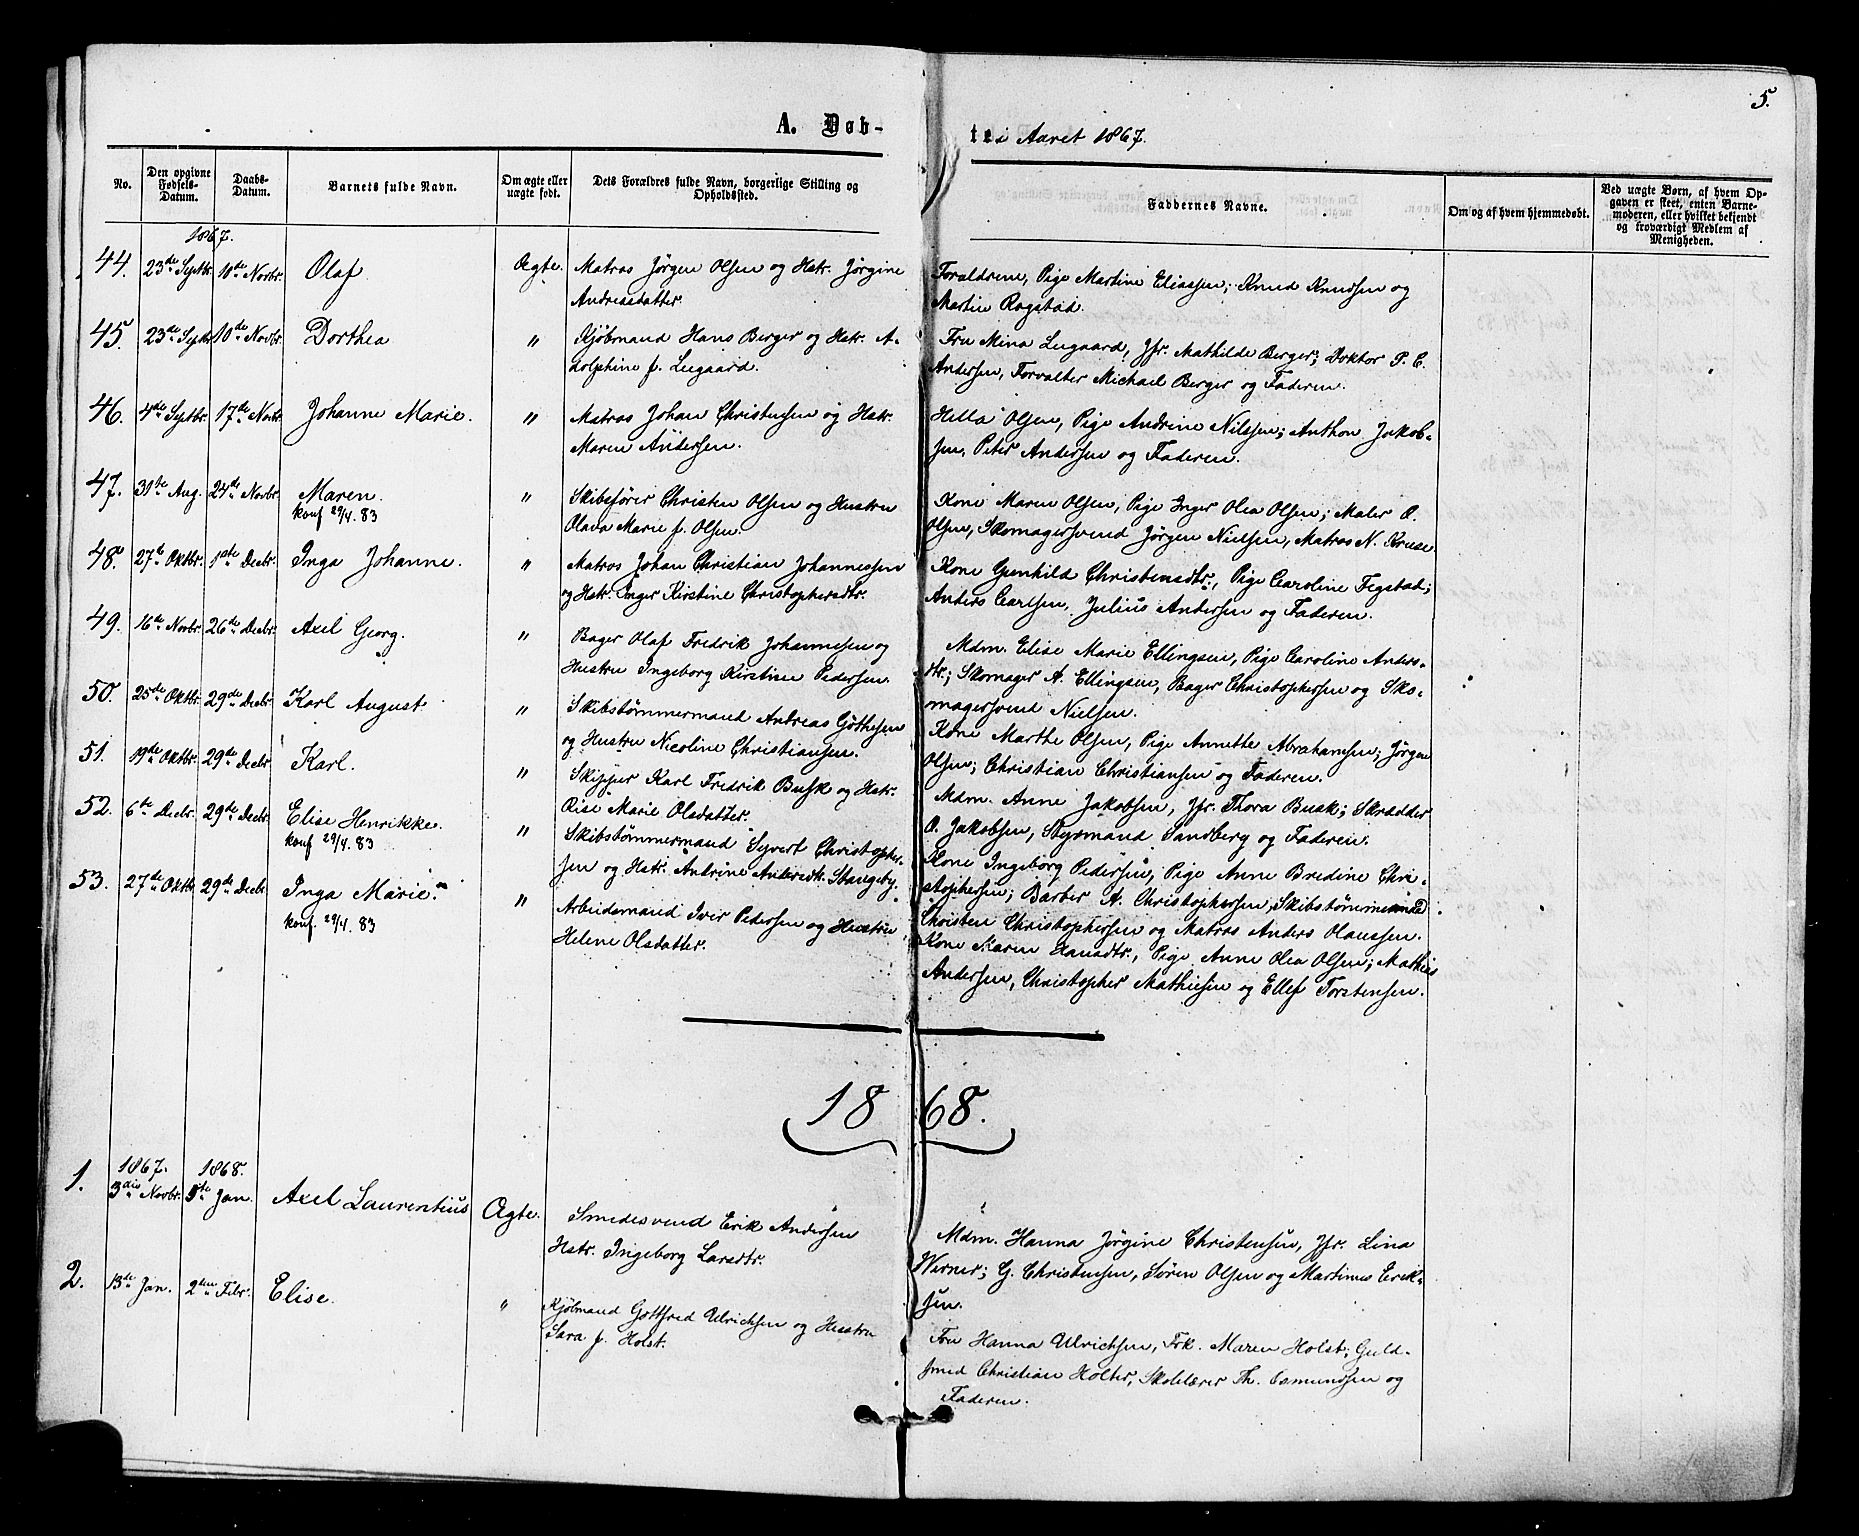 5.
A. Døb-
te i Aaret 1867.
No.
Den opgivne Fødsels-Datum.
Daabs-Datum.
Barnets fulde Navn.
Om ægte eller uægte født.
Dets Forældres fulde Navn, borgerlige Stilling og Opholdssted.
Faddernes Navne.
Om og af hvem hjemmedøbt.
Ved uægte Børn, af hvem Opgaven er skeet, enten Barnemoderen, eller hvilket bekjendt og troværdigt Medlem af Menigheden.
1867.
44. 23de Septbr. 10de Novbr. Olaf Ægte. Matros Jørgen Olsen og Hstr. Jørgine
Andreasdatter.
Forældrene, Pige Martine Eliassen; Knud Knudsen og
Martin Rogstad.
45. 23de Septbr. 10de Novbr. Dorthea " Kjøbmand Hans Berger og Hstr. A-
dolphine f. Leegaard.
Fru Mina Leegaard, Jfr. Mathilde Berger; Doktor P. C.
Andersen, Forvalter Michael Berger og Faderen.
46. 4de Septbr. 17de Novbr. Johanne Marie. " Matros Johan Christensen og Hstr.
Maren Andersen.
Hella Olsen, Pige Andrine Nilsen; Anthon Jakob-
sen, Peter Andersen og Faderen.
47. 31te Aug. 24de Novbr. Maren. " Skibsfører Christen Olsen og Hustru
konf 29/4. 83
Olava Marie f. Olsen.
Kone Maren Olsen, Pige Inger Olea Olsen; Maler O.
Olsen, Skomagersvend Jørgen Nielsen, Matros N. Kruse.
48. 27de Oktbr. 1ste Decbr. Inga Johanne. " Matros Johan Christian Johannessen
og Hstr. Inger Kirstine Christophersdtr.
Kone Gunhild Christensdtr., Pige Caroline Fegstad;
Anders Carlsen, Julius Andersen og Faderen.
49. 16de Novbr. 26de Decbr. Axel Georg. " Bager Olaf Fredrik Johannesen og
Hustru Ingeborg Kirstine Pedersen.
Mdm. Elise Marie Ellingsen, Pige Caroline Anders-
dtr.; Skomager A. Ellingsen, Bager Christophersen og Sko-
magersvend Nielsen.
50. 25de Oktbr. 29de Decbr. Karl August. " Skibstømmermand Andreas Göthesen
og Hustru Nicoline Christiansen.
Kone Marthe Olsen, Pige Annette Abrahamsen; Jørgen
Olsen; Christian Christiansen og Faderen.
51. 19de Oktbr. 29de Decbr. Karl. " Skipper Karl Fredrik Busk og Hstr.
Elise Marie Olsdatter.
Mdm. Anne Jakobsen, Jfr. Thora Busk; Skrædder
O. Jakobsen, Styrmand Sandberg og Faderen.
52. 6te Decbr. 29de Decbr. Elise Henrikke. " Skibstømmermand Syvert Christopher-
konf 29/4. 83
sen og Hstr. Andrine Andersdtr. Stangeby.
Kone Ingeborg Pedersen, Pige Anne Bredine Chri-
stophersen; Barber A. Christophersen, Skibstømmermand
Christen Christophersen og Matros Anders Olaussen.
53. 27de Oktbr. 29de Decbr. Inga Marie. " Arbeidsmand Iver Pedersen og Hustru
konf. 29/4. 83
Helene Olsdatter.
Kone Karen Hansdtr., Pige Anne Olea Olsen; Mathias
Andersen, Christopher Mathiesen og Ellef Torstensen.
1868.
1867. 1868.
1. 3die Novbr. 5te Jan. Axel Laurentius Ægte. Smedesvend Erik Andersen
Hstr. Ingeborg Larsdtr.
Mdm. Hanna Jørgine Christensen, Jfr. Lina
Werner; G. Christensen, Søren Olsen og Martinus Erik-
sen.
2. 13de Jan. 2den Febr. Elise. " Kjøbmand Gottfred Ulrichsen og Hustru
Sara f. Holst.
Fru Hanna Ulrichsen, Frk. Maren Holst; Guld-
smed Christian Holter, Skolelærer Th. Osmundsen og
Faderen.